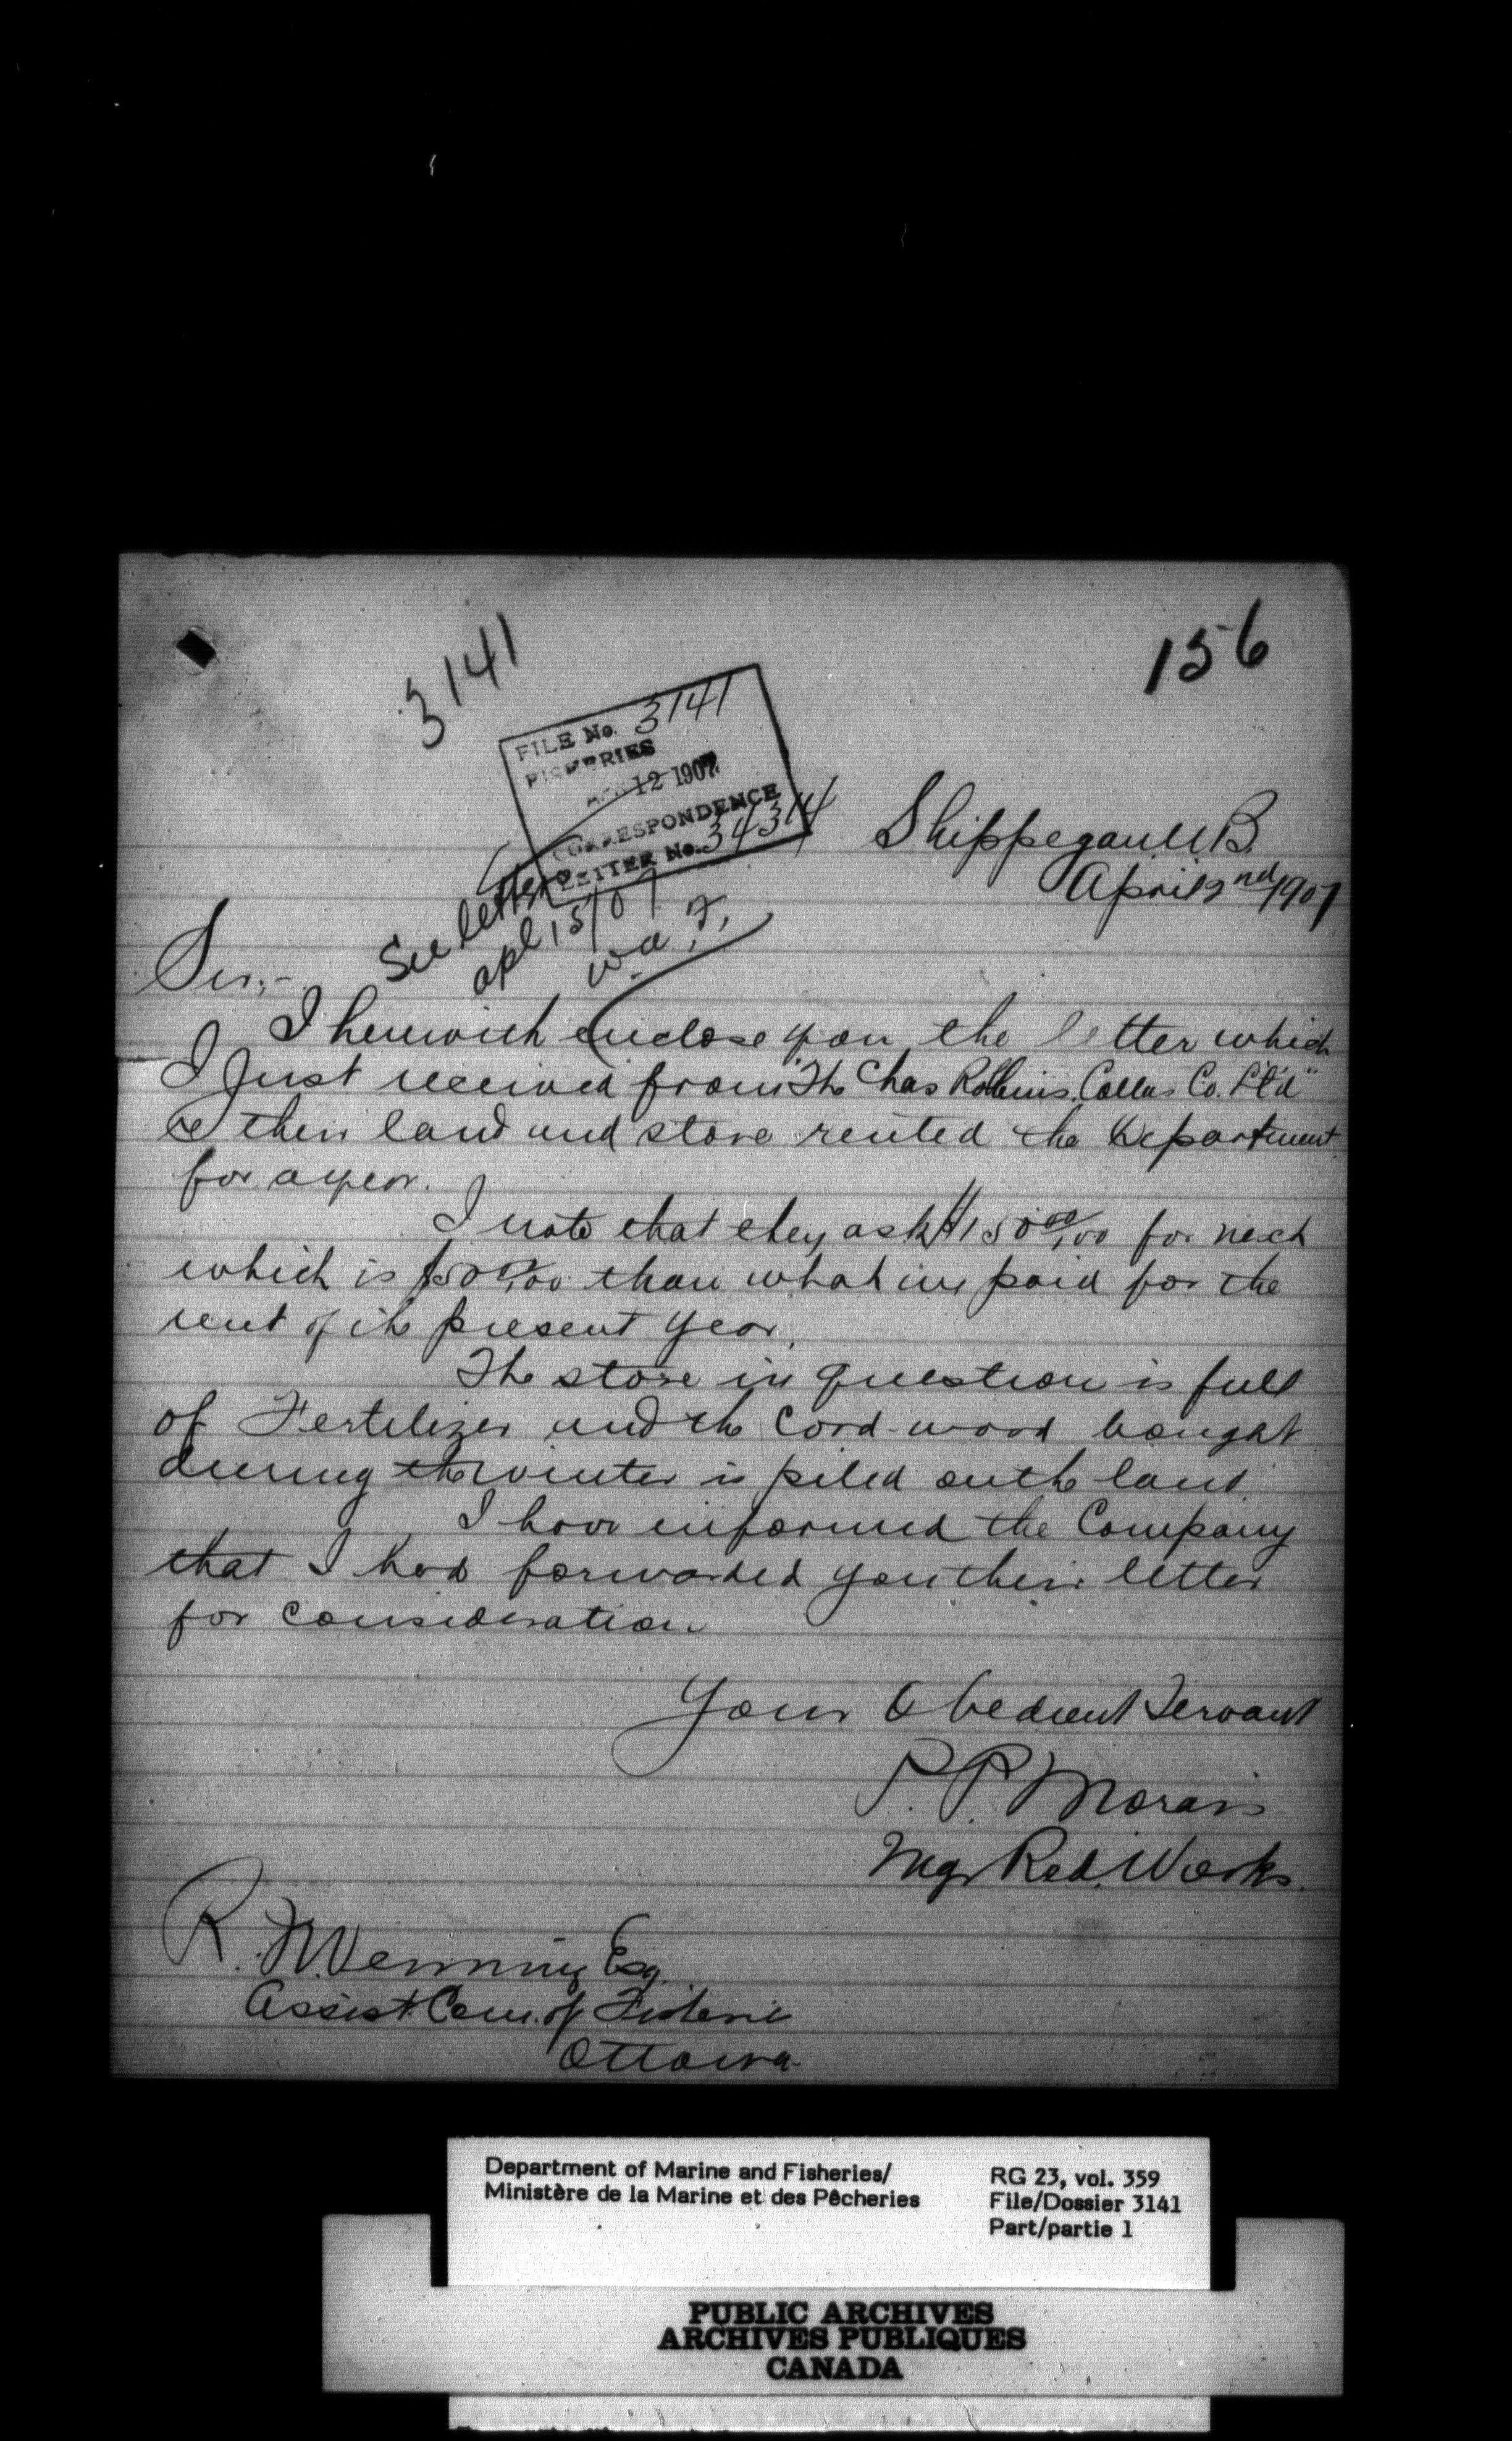 156
3141
FILE No. 3141
FISHERIES
APR 12 1907
CORRESPONDENCE
LETTER No. 34314
See letter
apl 15/07
W.a.F.
Shippegan N.B.
April 2nd/1907
Sir:-
I herewith enclose you the letter which
I Just received from "The Chas Robins. Collas Co. Lt'd"
re their land and store rented the Department
for a year.
I note that they ask $150 00/100 for next
which is $50 00/100 than what we paid for the
rent of the present year.
The store in question is full
of Fertilizer and the Cord-wood bought
during the winter is piled on the land.
I have informed the Company
that I had forwarded you their letter
for consideration
Your Obedient Servant
P. P. Morais
Mgr Red. Works.
R. N. Venning Esq.
Assist. Com. of Fisherie
Ottawa
Department of Marine and Fisheries/
Ministère de la Marine et des Pêcheries
RG 23, vol. 359
File/Dossier 3141
Part/partie 1
PUBLIC ARCHIVES
ARCHIVES PUBLIQUES
CANADA